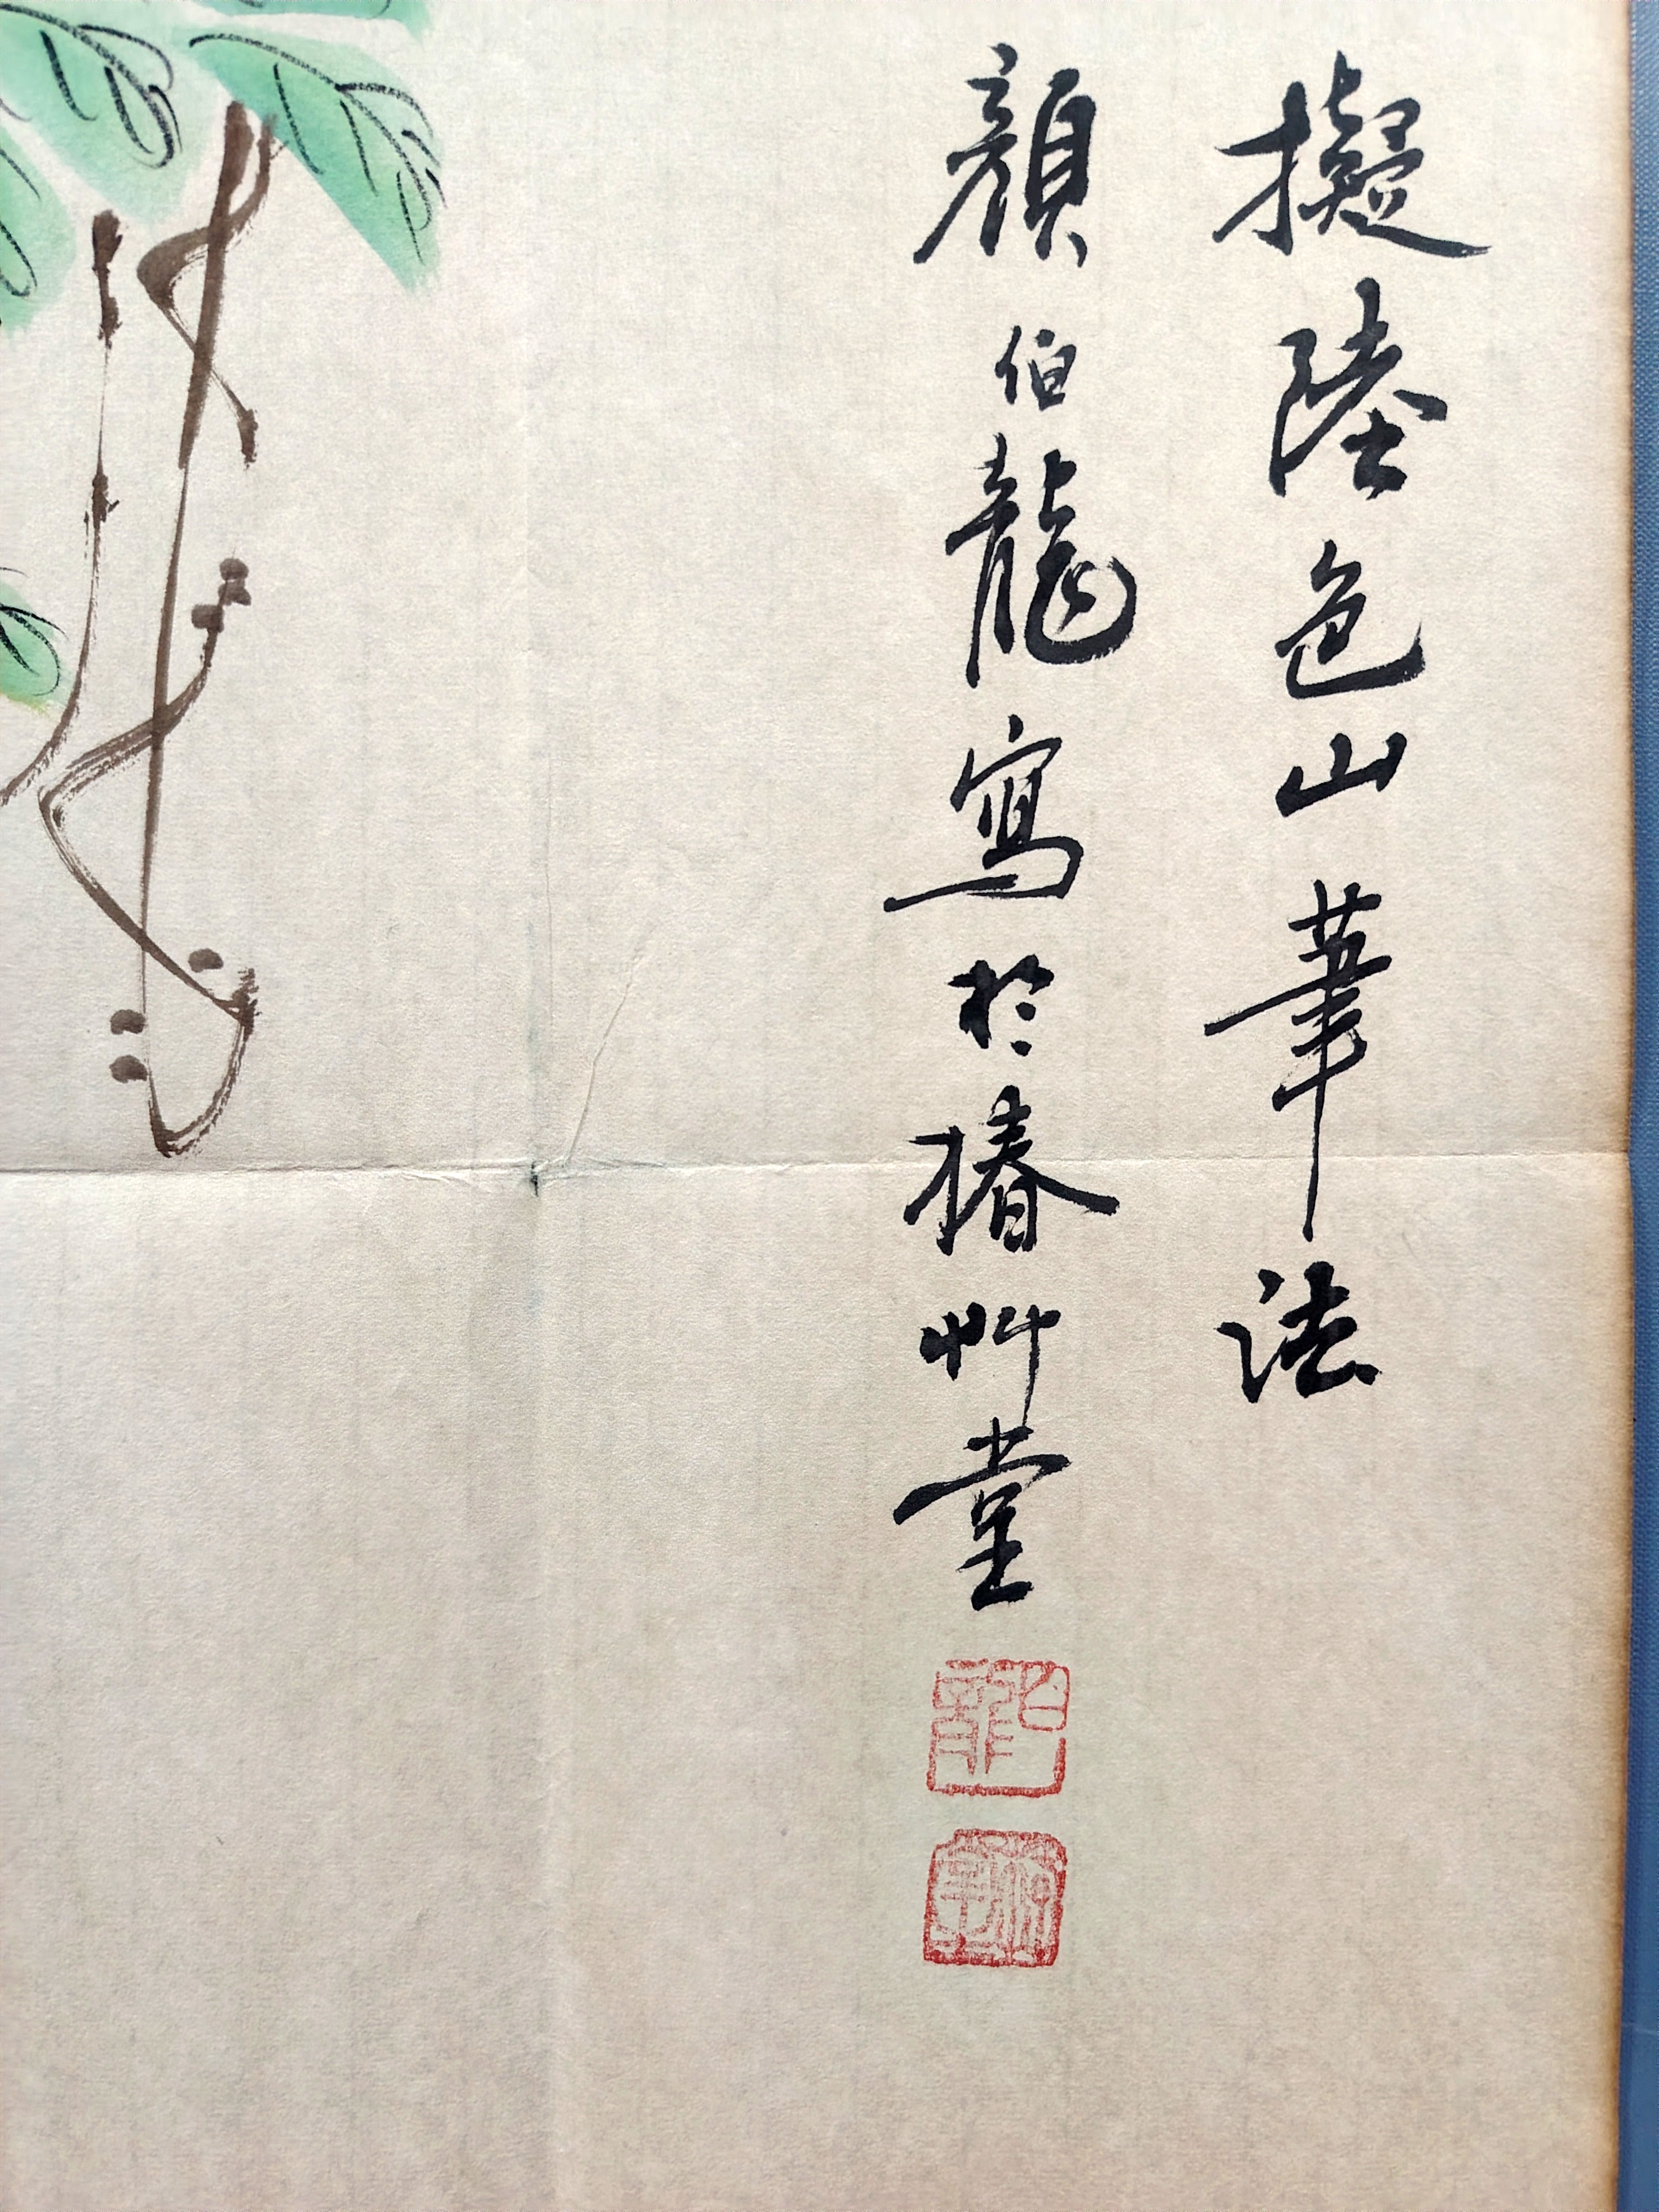 擬陸包山筆法
顏伯龍寫於椿艸堂
伯龍